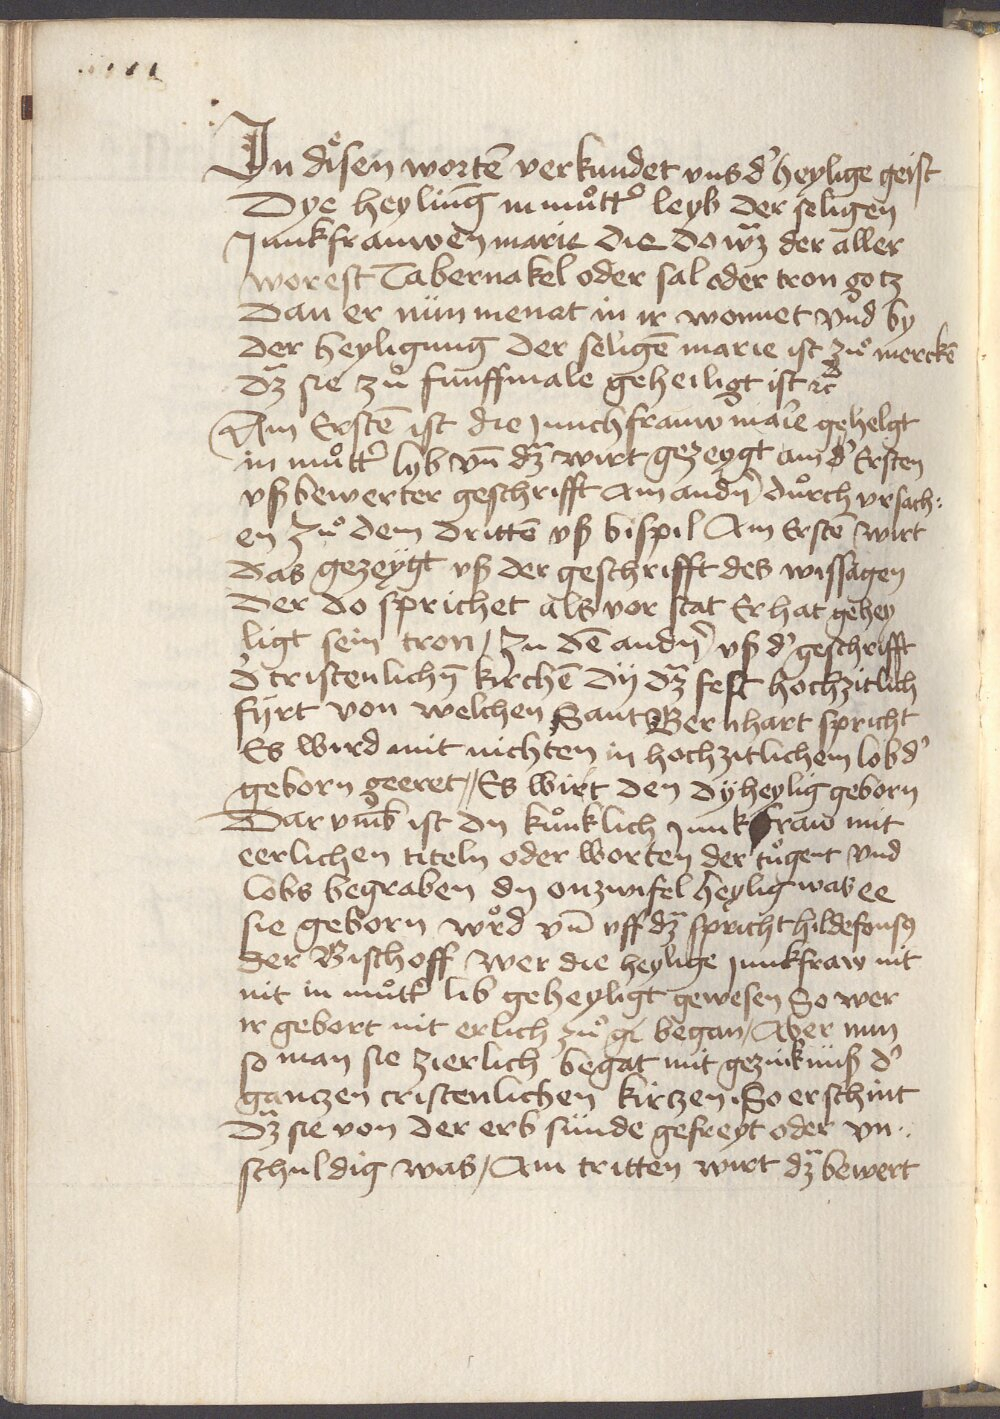 In disen wortē verkundet vns d' heylige geist
Dye heyling̅ in můtt' leyb der seligen
Junkfrauwen marie die do wz der aller
worest Tabernakel oder sal oder tron gotz
Dan er nün menat in ir wonnet vnd by
Der heyligung der seligē marie ist zů merckē
dz sie zů funffmale geheiligt ist ꝛc
Am Erstē ist die Junchfrauw marie gehelgt
in můtt' lyb vn̄ dz wirt gezeygt am d' Ersten
vß bewerter geschrifft Am andn̄ důrch vrsach:
en Zů dem drittē vß bispil Am Erstē wirt
das gezeygt vß der geschrifft des wissagen
Der do sprichet als vor stat Er hat gehey
ligt sein tron / Zu dē andn̄ vß d' geschrifft
d' cristenlichn̄ kirchē dy dz fest hochzitlich
fyrt von welchen Sant Bernhart spricht
Es wird mit nichten in hochzitlichem lob d'
geborn geeret // Es wirt den dy heylig geborn
Dar vmb ist dy kůnklich Junkfraw mit
eerlichen titeln oder worten der tůgent vnd
lobs begraben dy onzwifel heylig was ee
sie geborn wůrd vn̄ vff dz spricht hildefonsꝰ
der Bischoff Wer die heylige Junkfraw nit
nit in můtt' lib geheyligt gewesen So wer
ir gebort nit erlich zů began / Aber nun
so man sie zierlich begat mit gezuknüß d'
gantzen cristenlichen kirtzen So erschint
dz sie von der erb sünde gefreyt oder vn:
schuldig was / Am tritten wirt dz bewert